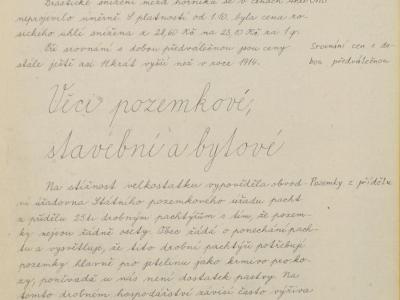 Drastické snížení mezd horníků se v cenách
neprojevilo úměrně. S platností od 1./10. byla cena ro-
sického uhlí snížena z 28,60 Kč na 25,10 Kč za 1 q.
Při srovnání s dobou předválečnou jsou ceny
stále ještě asi 11krát vyšší než v roce 1914.
Srovnání cen s do-
bou předválečnou
Věci pozemkové,
stavební a bytové
Na stížnost velkostatku vypověděla obvod-
ní úřadovna Státního pozemkového úřadu pacht
z přídělu 25ti drobným pachtýřům s tím, že pozem-
ky nejsou řádně osety. Obec žádá o ponechání pach-
tu a vysvětluje, že tito drobní pachtýři potřebují
pozemky hlavně pro jetelinu jako krmivo pro ko-
zy, poněvadž u nás není dostatek pastvy. Na
tomto drobném hospodářství závisí často výživa
Pozemky z přídělu